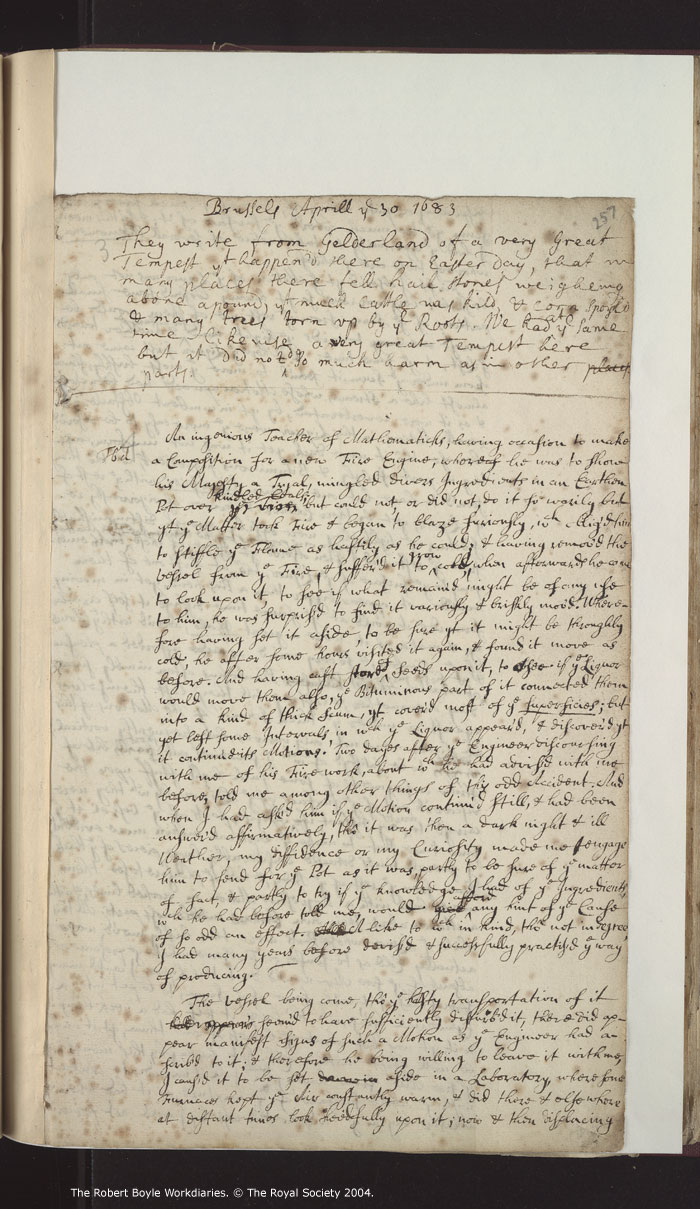 Brussels Aprill ye 30 1683
257
3 They write from Gelderland of a very Great
Tempest yt happen'd there on Easter day, that in
many places there fell hail stones weighing
above a pound, yt much Cattle was kild, & Corn spoyl'd
& many trees torn up by ye Roots. We had at ye same
time likewise a very great Tempest here
but it did not do so much harm as in other places
parts.
An ingenious Teacher of Mathematicks, having occasion to make
a Composition for a new Fire Engine, whereof he was to show
his Majesty a Tryal, mingled divers Ingredients in an Earthen
Pot over kindled Coals, but could not, or did not, do it so warily but
yt ye Matter took Fire & began to blaze furiously, wch oblig'd him
to stiffle ye Flame as hastily as he could; & having remov'd the
vessel from ye Fire, & suffer'd it to grow cold, when afterwards he came
to look upon it, to see if what remain'd might be of any use
to him, he was surpris'd to find it variously & briskly mov'd. Where-
fore having set it aside, to be sure yt it might be throughly
cold, he after some hours visited it again, & found it move as
before. And having cast Seeds upon it, to see if ye Liquor
would move them also, ye Bituminous part of it connected them
into a kind of thick scum, yt cover'd most of ye superficies; but
yet left some Intervals in wch ye Liquor appear'd, & discover'd, yt
it continued its Motions. Two dayes after ye Engineer discoursing
with me of his Fire work, about wch he had advis'd with me
before, told me among other things of this odd Accident. And
when I had askd him if ye Motion continu'd still, & had been
answer'd affirmatively, tho it was then a dark night & ill
Weather, my diffidence or my Curiosity made me engage
him to send for ye Pot as it was, partly to be sure of ye matter
of fact, & partly to try if ye knowledge I had of ye Ingredients,
wch he had before told me, would afford any hint of ye Cause
of so odd an effect. A like to wch in kind, tho' not in degree,
I had many years before devis'd & successfully practis'd ye way
of producing.
The vessel being come, tho' ye hasty transportation of it
seem'd to have sufficiently disturb'd it, there did ap-
pear manifest signs of such a Motion as ye Engineer had a-
scrib'd to it; & therefore he being willing to leave it with me,
I caus'd it to be set aside in a Laboratory, where some
Furnaces kept ye Air constantly warm, & did there & elsewhere
at distant times look heedfully upon it, now & then displacing
The Robert Boyle Workdiaries. © The Royal Society 2004.